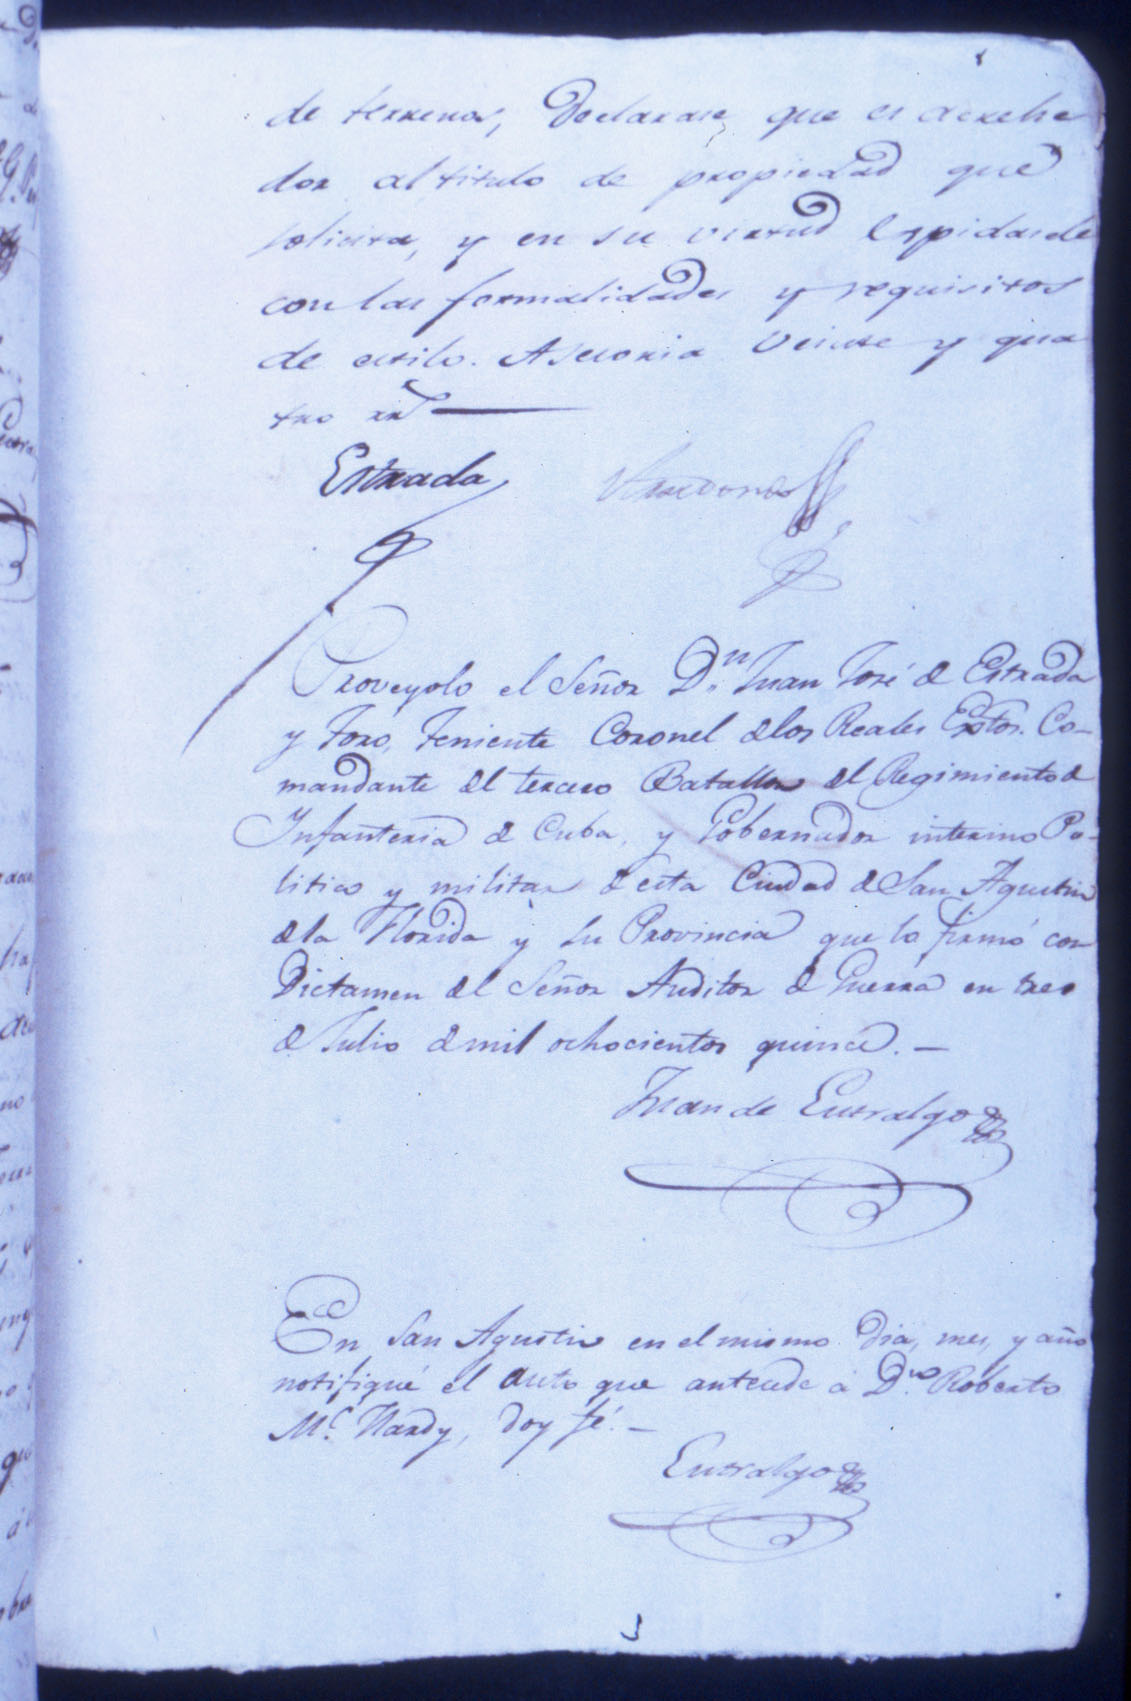 de terrenos, Declarase que es acrehe
dor al titulo de propiedad que
solicita, y en su virtud Espidasele
con las formalidades y requisitos
de estilo. Asesoria veinte y qua
tro rr.s
Estrada
Proveyolo el Señor D.n Juan José de Estrada
y Toro, Teniente Coronel de los Reales Extos. Co-
mandante del tercero Batallon del Regimiento de
Infanteria de Cuba, y Gobernador interino Po-
litico y militar de esta Ciudad de San Agustin
de la Florida y su Provincia que lo firmó con
Dictamen del Señor Auditor de Guerra en tres
de Julio de mil ochocientos quince. —
Juan de Entralgo
En San Agustin en el mismo dia, mes, y año
notifiqué el auto que antecede á D.n Roberto
M.c Hardy, doy fé. —
Entralgo